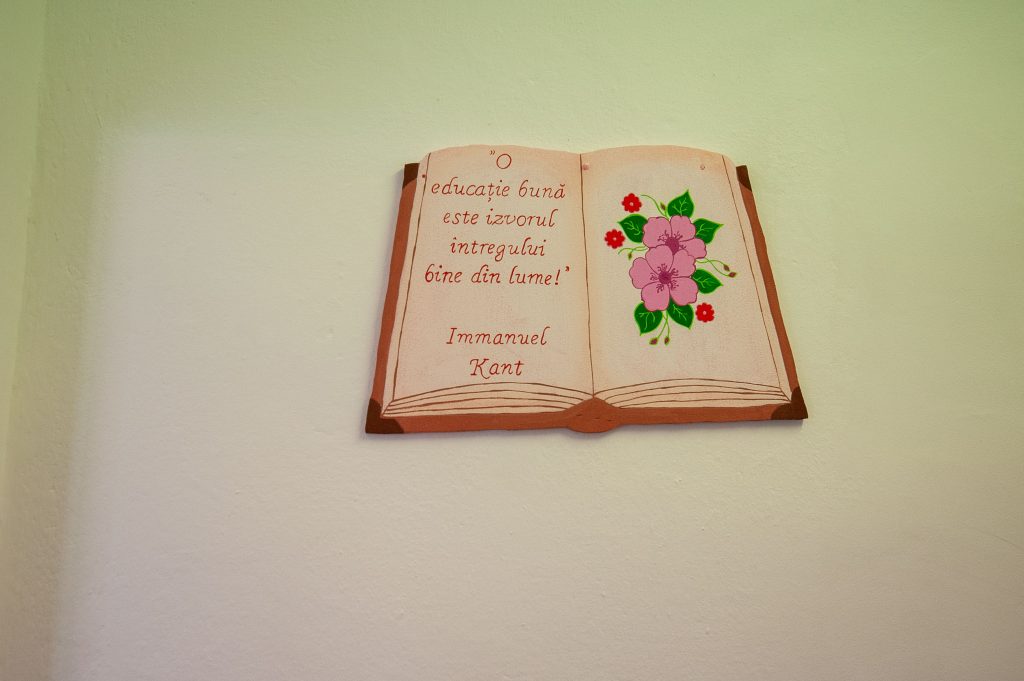 "O
educație bună
este izvorul
întregului
bine din lume!"
Immanuel
Kant